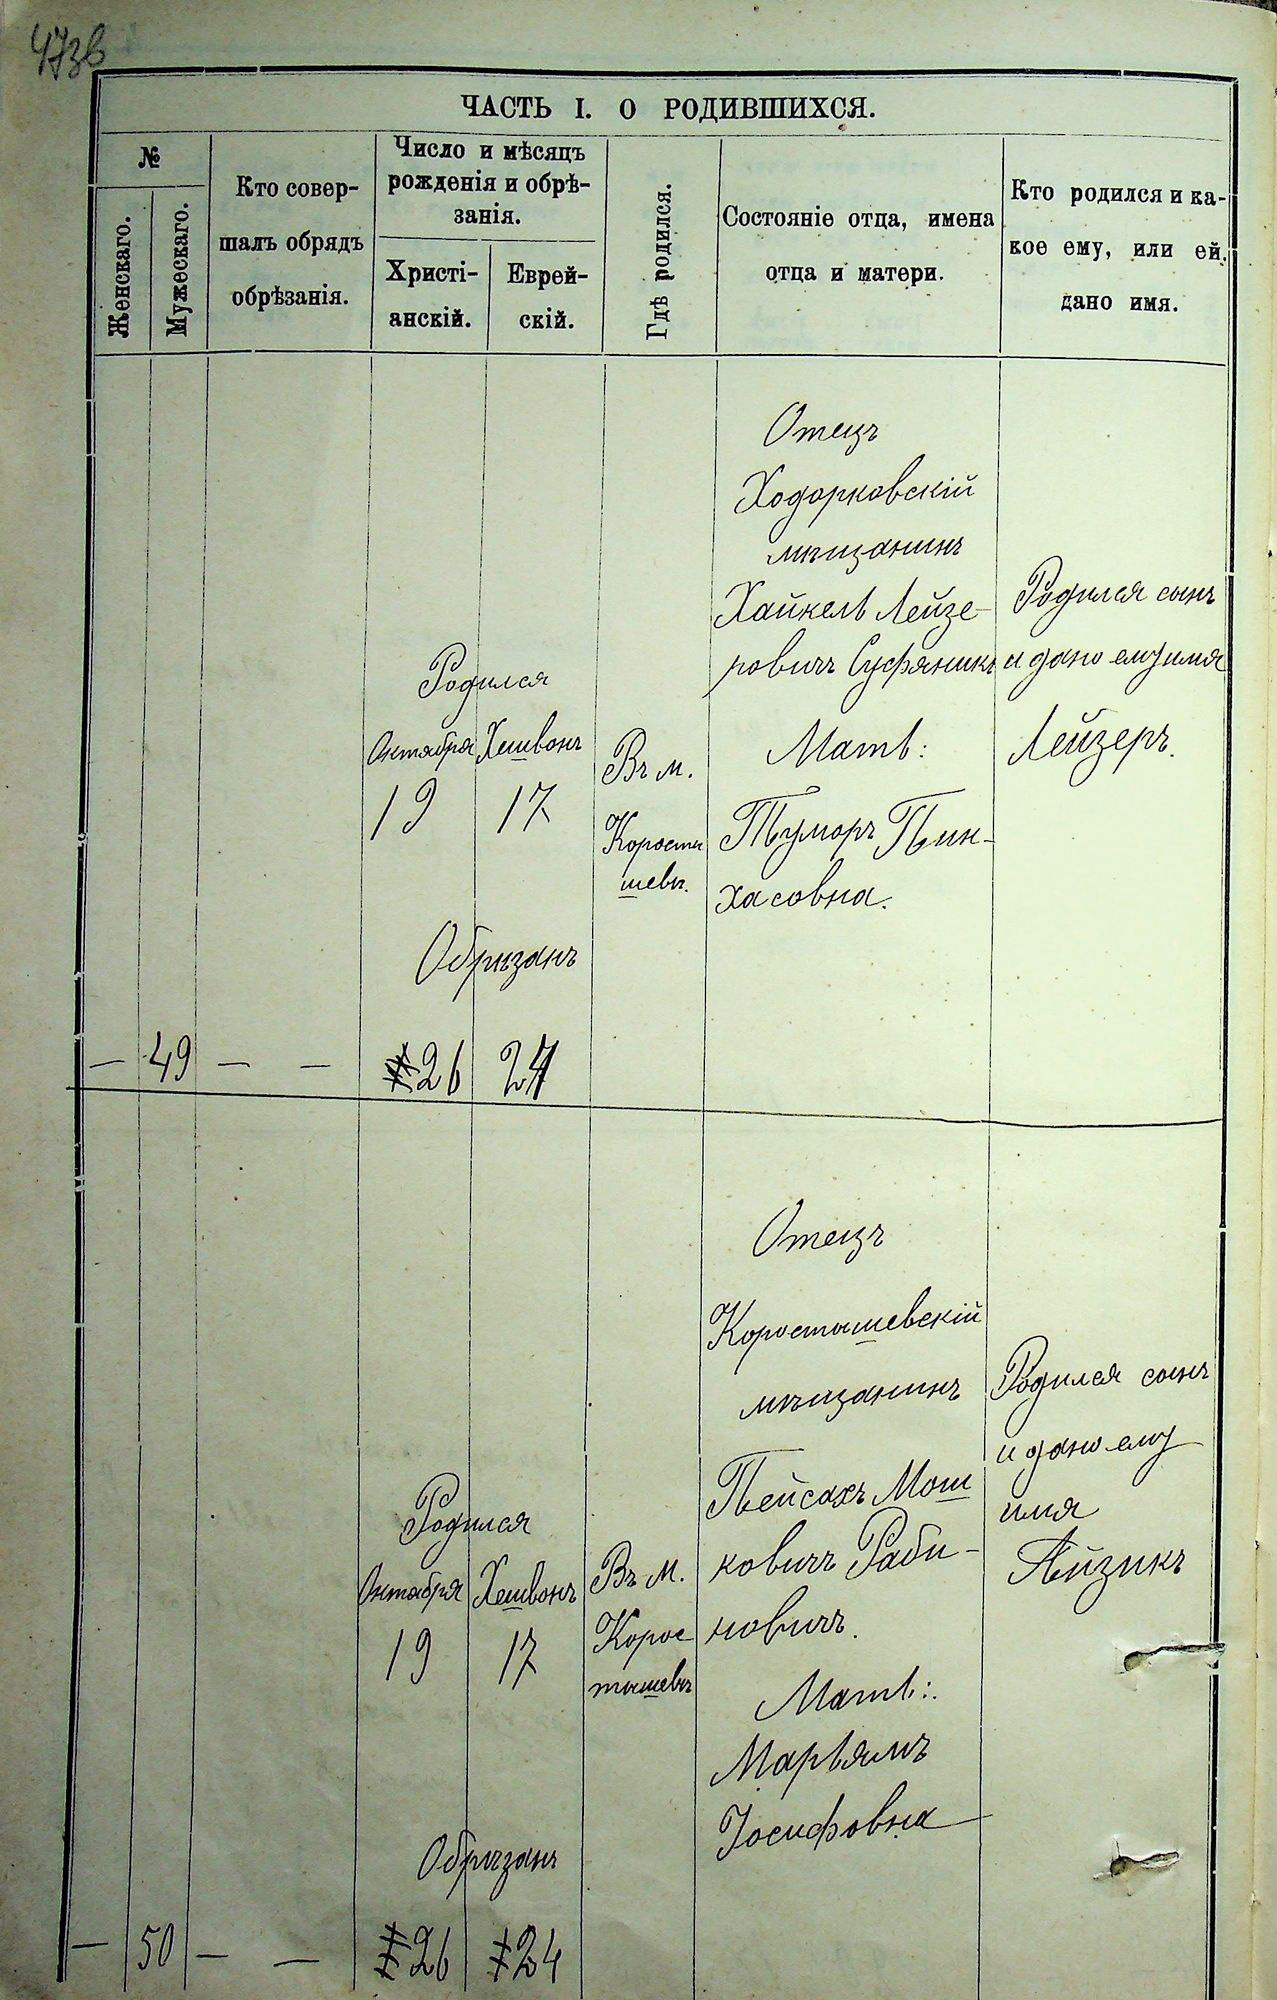 473в
ЧАСТЬ I. О РОДИВШИХСЯ.
№
Женскаго.
Мужескаго.
Кто совер-
шалъ обрядъ
обрѣзанія.
Число и мѣсяцъ
рожденія и обрѣ-
занія.
Христі-
анскій.
Еврей-
скій.
Гдѣ родился.
Состояніе отца, имена
отца и матери.
Кто родился и ка-
кое ему, или ей,
дано имя.
— 49 — —
Родился
Октября Хешвонъ
19 17
Обрѣзанъ
26 24
Въ м.
Коросты
шевѣ.
Отецъ
Ходорковскій
мѣщанинъ
Хайкель Лейзе-
ровичъ Суфяникъ
Мать:
Туморъ Пин-
хасовна.
Родился сынъ
и дано ему имя
Лейзеръ.
— 50 — —
Родился
Октября Хешвонъ
19 17
Обрѣзанъ
26 24
Въ м.
Корос
тышевѣ
Отецъ
Коростышевскій
мѣщанинъ
Пейсахъ Мош
ковичъ Раби-
новичъ.
Мать:
Марьямъ
Іосифовна
Родился сынъ
и дано ему
имя
Айзикъ